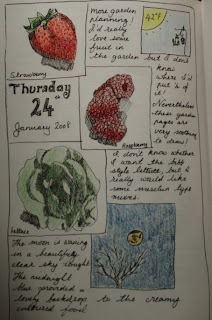 more garden
planning!
I'd really
love some
fruit in
the garden but I don't
know
where I'd
put it if
I
Strawberry
42°F
Thursday
24
January 2008
Nevertheless
these garden
pages are
very soothing
to draw!
Raspberry
I don't know whether
I want the bibb
style lettuce, but I
really would like
some mesclun type
mixes.
lettuce
The moon is shining
in a beautifully
clear sky tonight.
The midnight
blue provided a
lovely backdrop to the creamy
coloured food